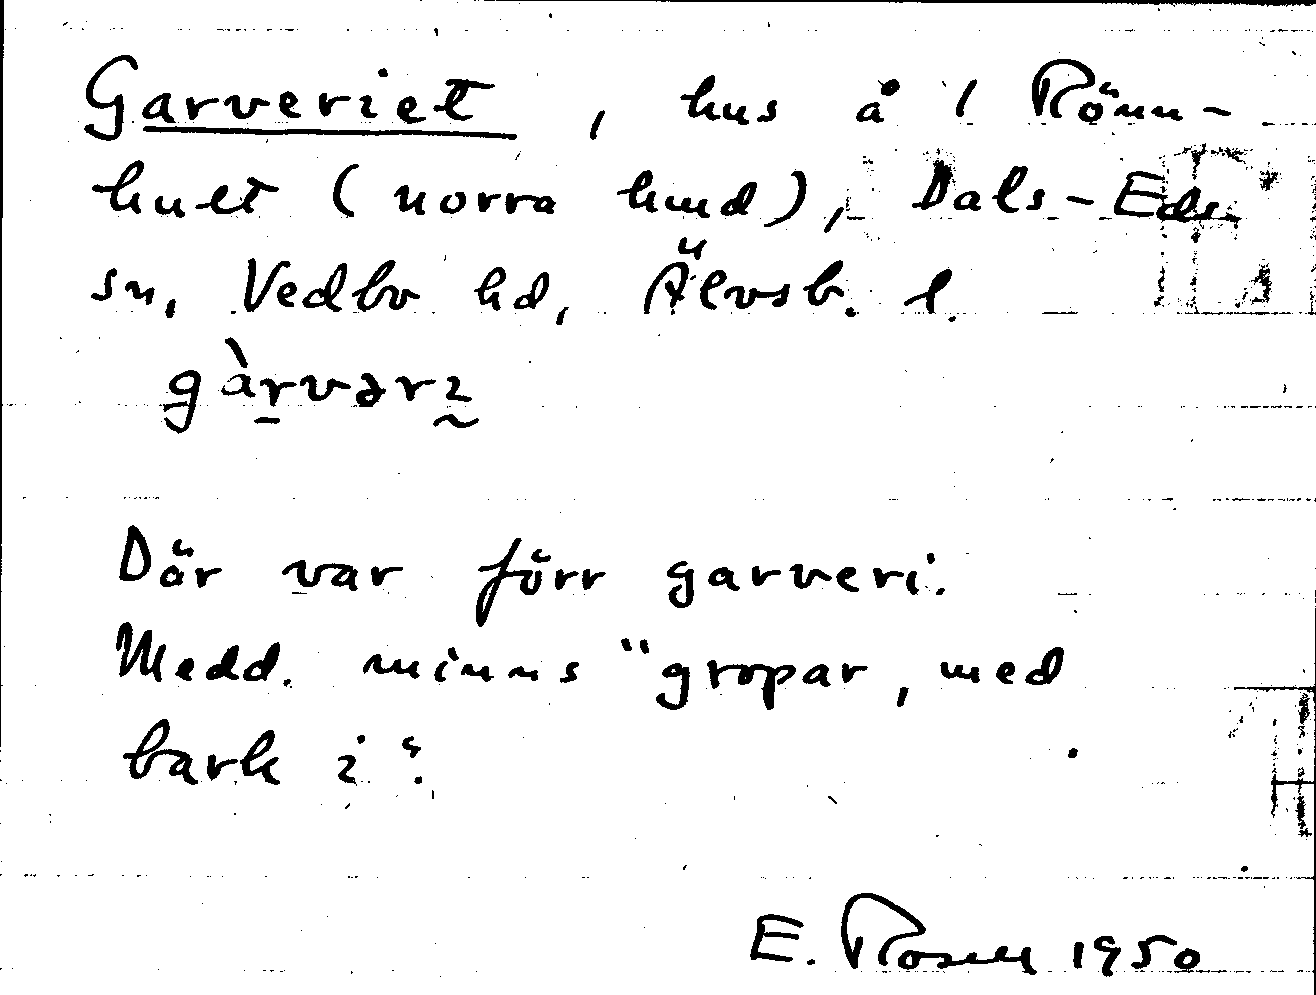 Garveriet, hus å 1 Rönn-
hult (norra hmd), Dals-Eds
sn, Vedbo hd, Älvsb. l.
gàrvərı
Där var förr garveri.
Medd. minns "gropar, med
bark i".
E. Rosell 1950